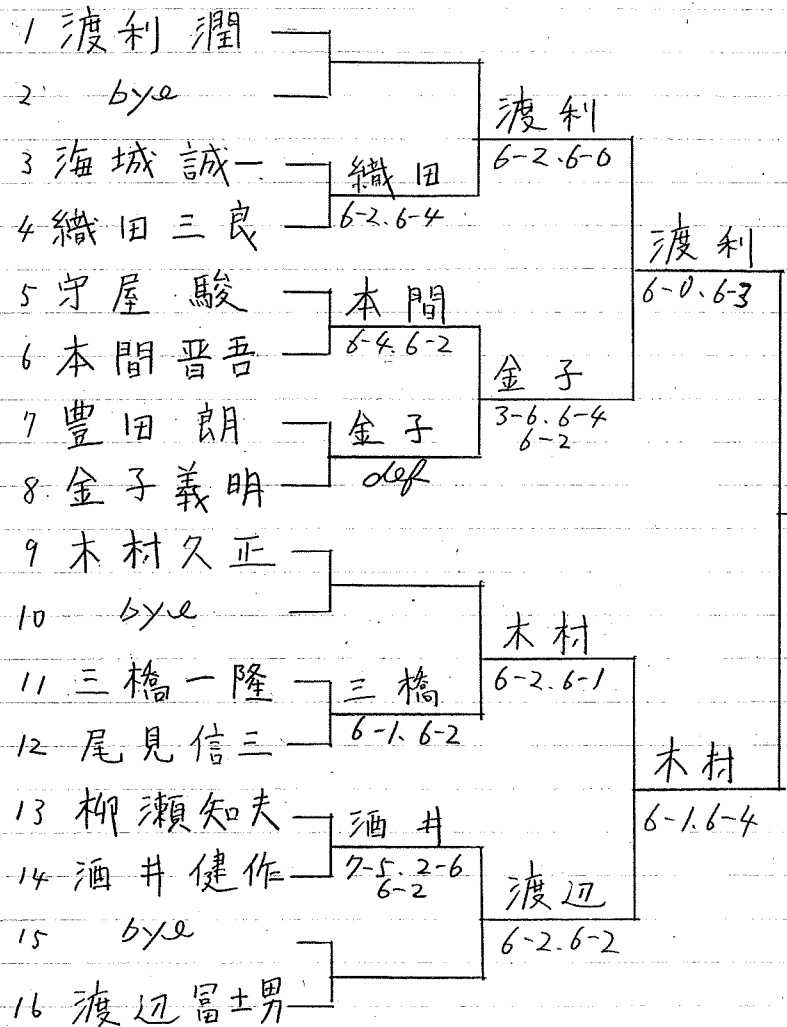 1 渡利 潤
2 bye
3 海城 誠一
4 織田三良
5 守屋 駿
6 本間晋吾
7 豊田 朗
8 金子義明
9 木村久正
10 bye
11 三橋一隆
12 尾見信三
13 柳瀬知夫
14 酒井健作
15 bye
16 渡辺冨士男
織田
6-2. 6-4
本間
6-4. 6-2
金子
def
三橋
6-1. 6-2
酒井
7-5. 2-6
6-2
渡利
6-2. 6-0
金子
3-6. 6-4
6-2
木村
6-2. 6-1
渡辺
6-2. 6-2
渡利
6-0. 6-3
木村
6-1. 6-4